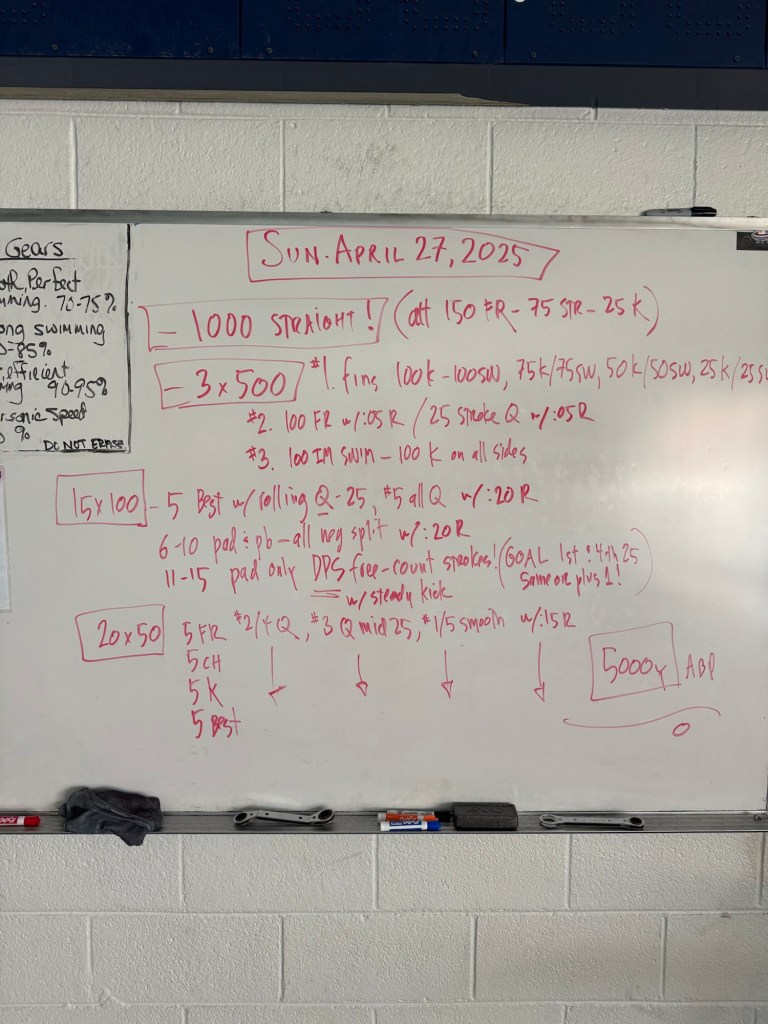 Gears
Perfect
70-75%
SWIMMING
-85%
efficient
90-95%
Speed
%
DO NOT ERASE
SUN. APRIL 27, 2025
- 1000 STRAIGHT! (alt 150 FR - 75 STR - 25 K)
- 3 x 500 #1. fins, 100K - 100SW, 75K/75SW, 50K/50SW, 25K/25S
#2. 100 FR w/:05 R / 25 Stroke Q w/:05R
#3. 100 IM SWIM - 100 K on all sides
15 x 100 - 5 Best w/ rolling Q-25, #5 all Q w/:20R
6-10 pad & pb - all neg split w/:20R
11-15 pad only DPS free-count strokes! (GOAL 1st & 4th 25
same or plus 1!)
w/ steady kick
20 x 50 5 FR #2/4 Q, #3 Q mid 25, #1/5 smooth w/:15R
5 CH
5 K
5 Best
5000y ABP